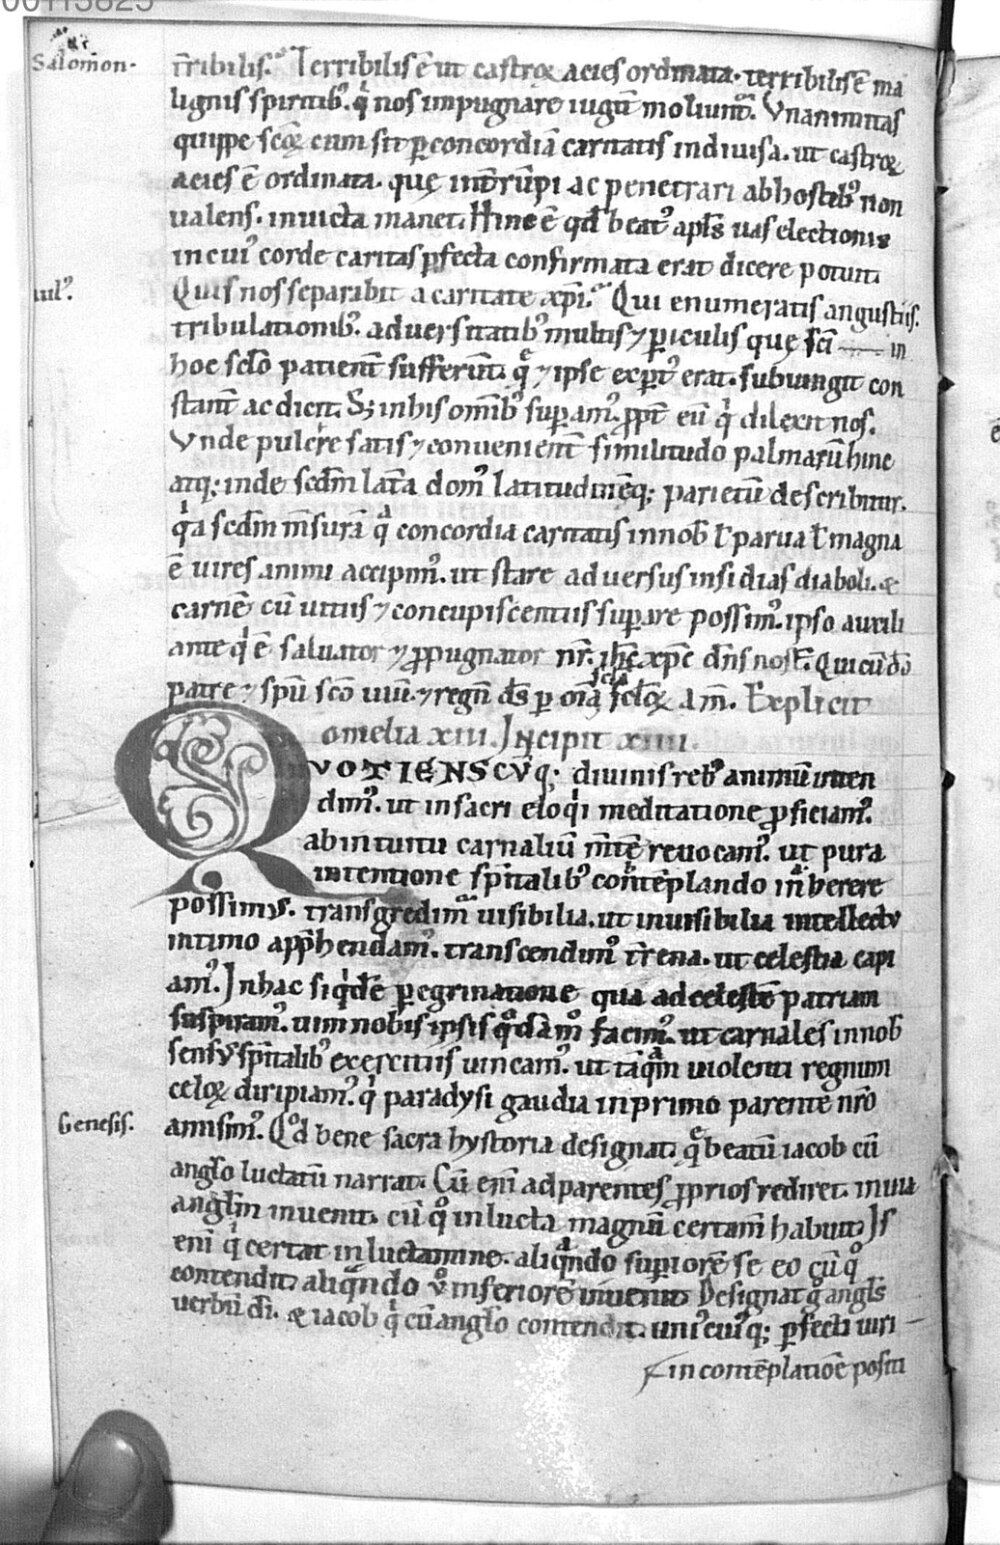 00113825
Salomon.
t̄ribilis. Terribilis ē ut castroꝝ acies ordinata. terribilis ē ma
lignis spiritibꝰ. qͥ nos inpugnare iugit̄ moliunt᷑. Vnanimitas
quippe scōꝝ cum sit ꝑ concordiā caritatis indiuisa. ut castroꝝ
acies ē ordinata. quę int̄rūpi ac penetrari ab hostibꝰ non
ualens. inuicta manet. Hinc ē qd̄ beatꝰ apl̄s uas electionis
in cuiꝰ corde caritas ꝑfecta confirmata erat dicere potuit.
Quis nos separabit a caritate xp̄i. Qui enumeratis angustiis.
tribulationibꝰ. aduersitatibꝰ multis ⁊ ꝑiculis quę sc̄i in
hoc sclo patient̄ sufferūt. qͤ ⁊ ipse exꝑtꝰ erat. subiungit con
stant̄ ac dicit. Sꝫ in his om̄ibꝰ suꝑamꝰ ꝓpt̄ eū qͥ dilexit nos.
Vnde pulcre satis ⁊ conuenient̄ similitudo palmarū hinc
atqꝫ inde scdm̄ lat̄a domꝰ latitudinēqꝫ parietū describitur.
qͥa scdm̄ m̄surā qͣ concordia caritatis in nob̄ ł parua ł magna
ē uires animi accipimꝰ. ut stare aduersus insidias diaboli. &
carnē cū uitiis ⁊ concupiscentiis suꝑare possimꝰ. ipso auxili
ante qͥ ē saluator ⁊ ꝓpugnator nr̄. ih̄c xp̄c dn̄s nost̄. Qui cū dō
patre ⁊ spū scō uiu. ⁊ regn̄ ds̄ ꝑ om̄a scła scloꝝ am̄. Explicit
omelia xiii. Incipit xiiii.
QVOTIENSCVqꝫ diuinis rebꝰ animū inten
dimꝰ. ut in sacri eloqͥi meditatione ꝓficiamꝰ.
ab intuitu carnaliū m̄tē reuocamꝰ. ut pura
intentione sp̄italibꝰ contēplando inherere
possimus. transgredimͣ uisibilia. ut inuisibilia intellectu
intimo app̄hendamꝰ. transcendimꝰ t̄rena. ut celestia capi
amꝰ. In hac siqͥdē ꝑegrinatione qua ad celestē patriam
suspiramꝰ. uim nobis ipsis qͦdāmͦ facimꝰ. ut carnales in nob̄
sensꝰ sp̄italibꝰ exercitiis uincamꝰ. ut tāqͣm uiolenti regnum
celoꝝ diripiamꝰ. qͥ paradysi gaudia in primo parente nr̄o
Genesis. amisimꝰ. Qͦd bene sacra hystoria designat. qͤ beatū iacob cū
anglo luctatū narrat. Cū eni ad parentes ꝓprios rediret. in uia
anglm̄ inuenit. cū qͦ in lucta magnū certam̄ habuit. Is
eni qͥ certat in luctamine. aliqͣndo suꝑiorē se eo cū qͦ
contendit. aliqͣndo ỏ inferiorē inuenit. Designat gͦ angl̄s
uerbū dī. & iacob qͥ cū anglo contendit. uniꝰcuiꝰqꝫ ꝑfecti uiri
in contēplatiōe positi